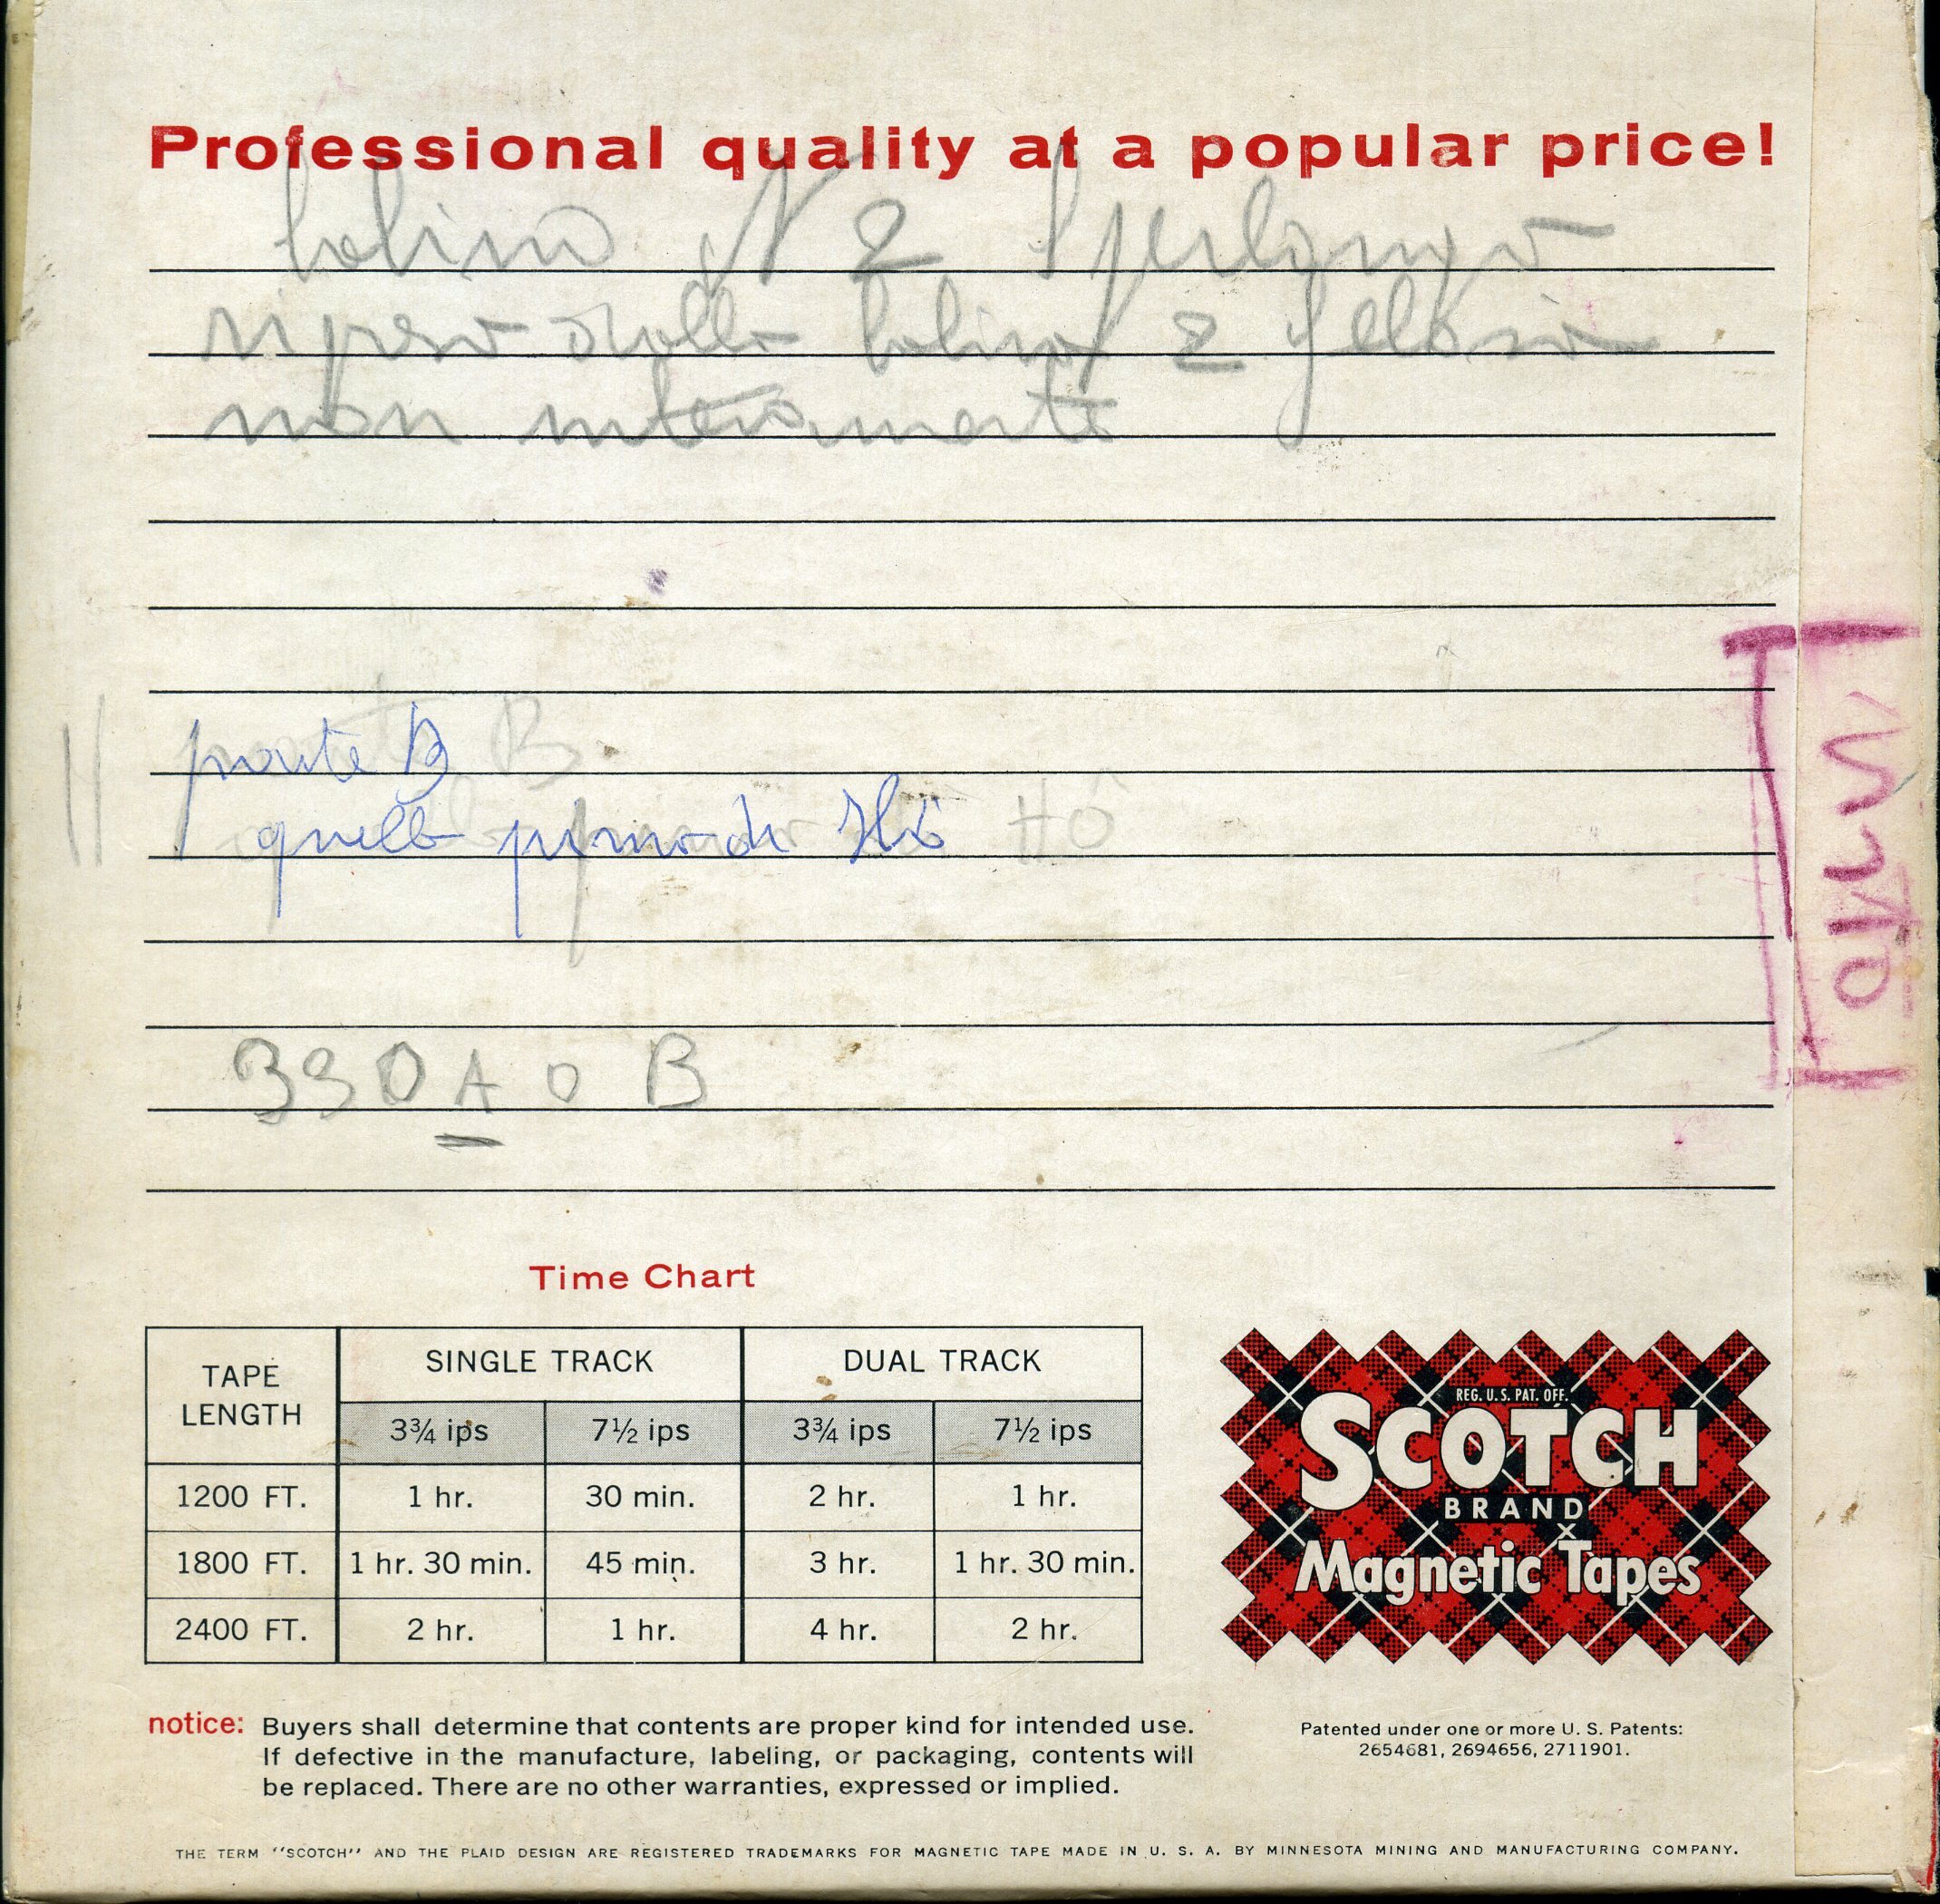 Professional quality at a popular price!
bobina N 2 Sperlonga
ripresa dalla bobina 2 gelosia
non interamente
parte B B
quella prima di Hô HÔ
330 A o B
Time Chart
TAPE LENGTH SINGLE TRACK DUAL TRACK
3¾ ips 7½ ips 3¾ ips 7½ ips
1200 FT. 1 hr. 30 min. 2 hr. 1 hr.
1800 FT. 1 hr. 30 min. 45 min. 3 hr. 1 hr. 30 min.
2400 FT. 2 hr. 1 hr. 4 hr. 2 hr.
REG. U. S. PAT. OFF.
SCOTCH
BRAND
Magnetic Tapes
notice: Buyers shall determine that contents are proper kind for intended use.
If defective in the manufacture, labeling, or packaging, contents will
be replaced. There are no other warranties, expressed or implied.
Patented under one or more U. S. Patents:
2654681, 2694656, 2711901.
THE TERM "SCOTCH" AND THE PLAID DESIGN ARE REGISTERED TRADEMARKS FOR MAGNETIC TAPE MADE IN U. S. A. BY MINNESOTA MINING AND MANUFACTURING COMPANY.